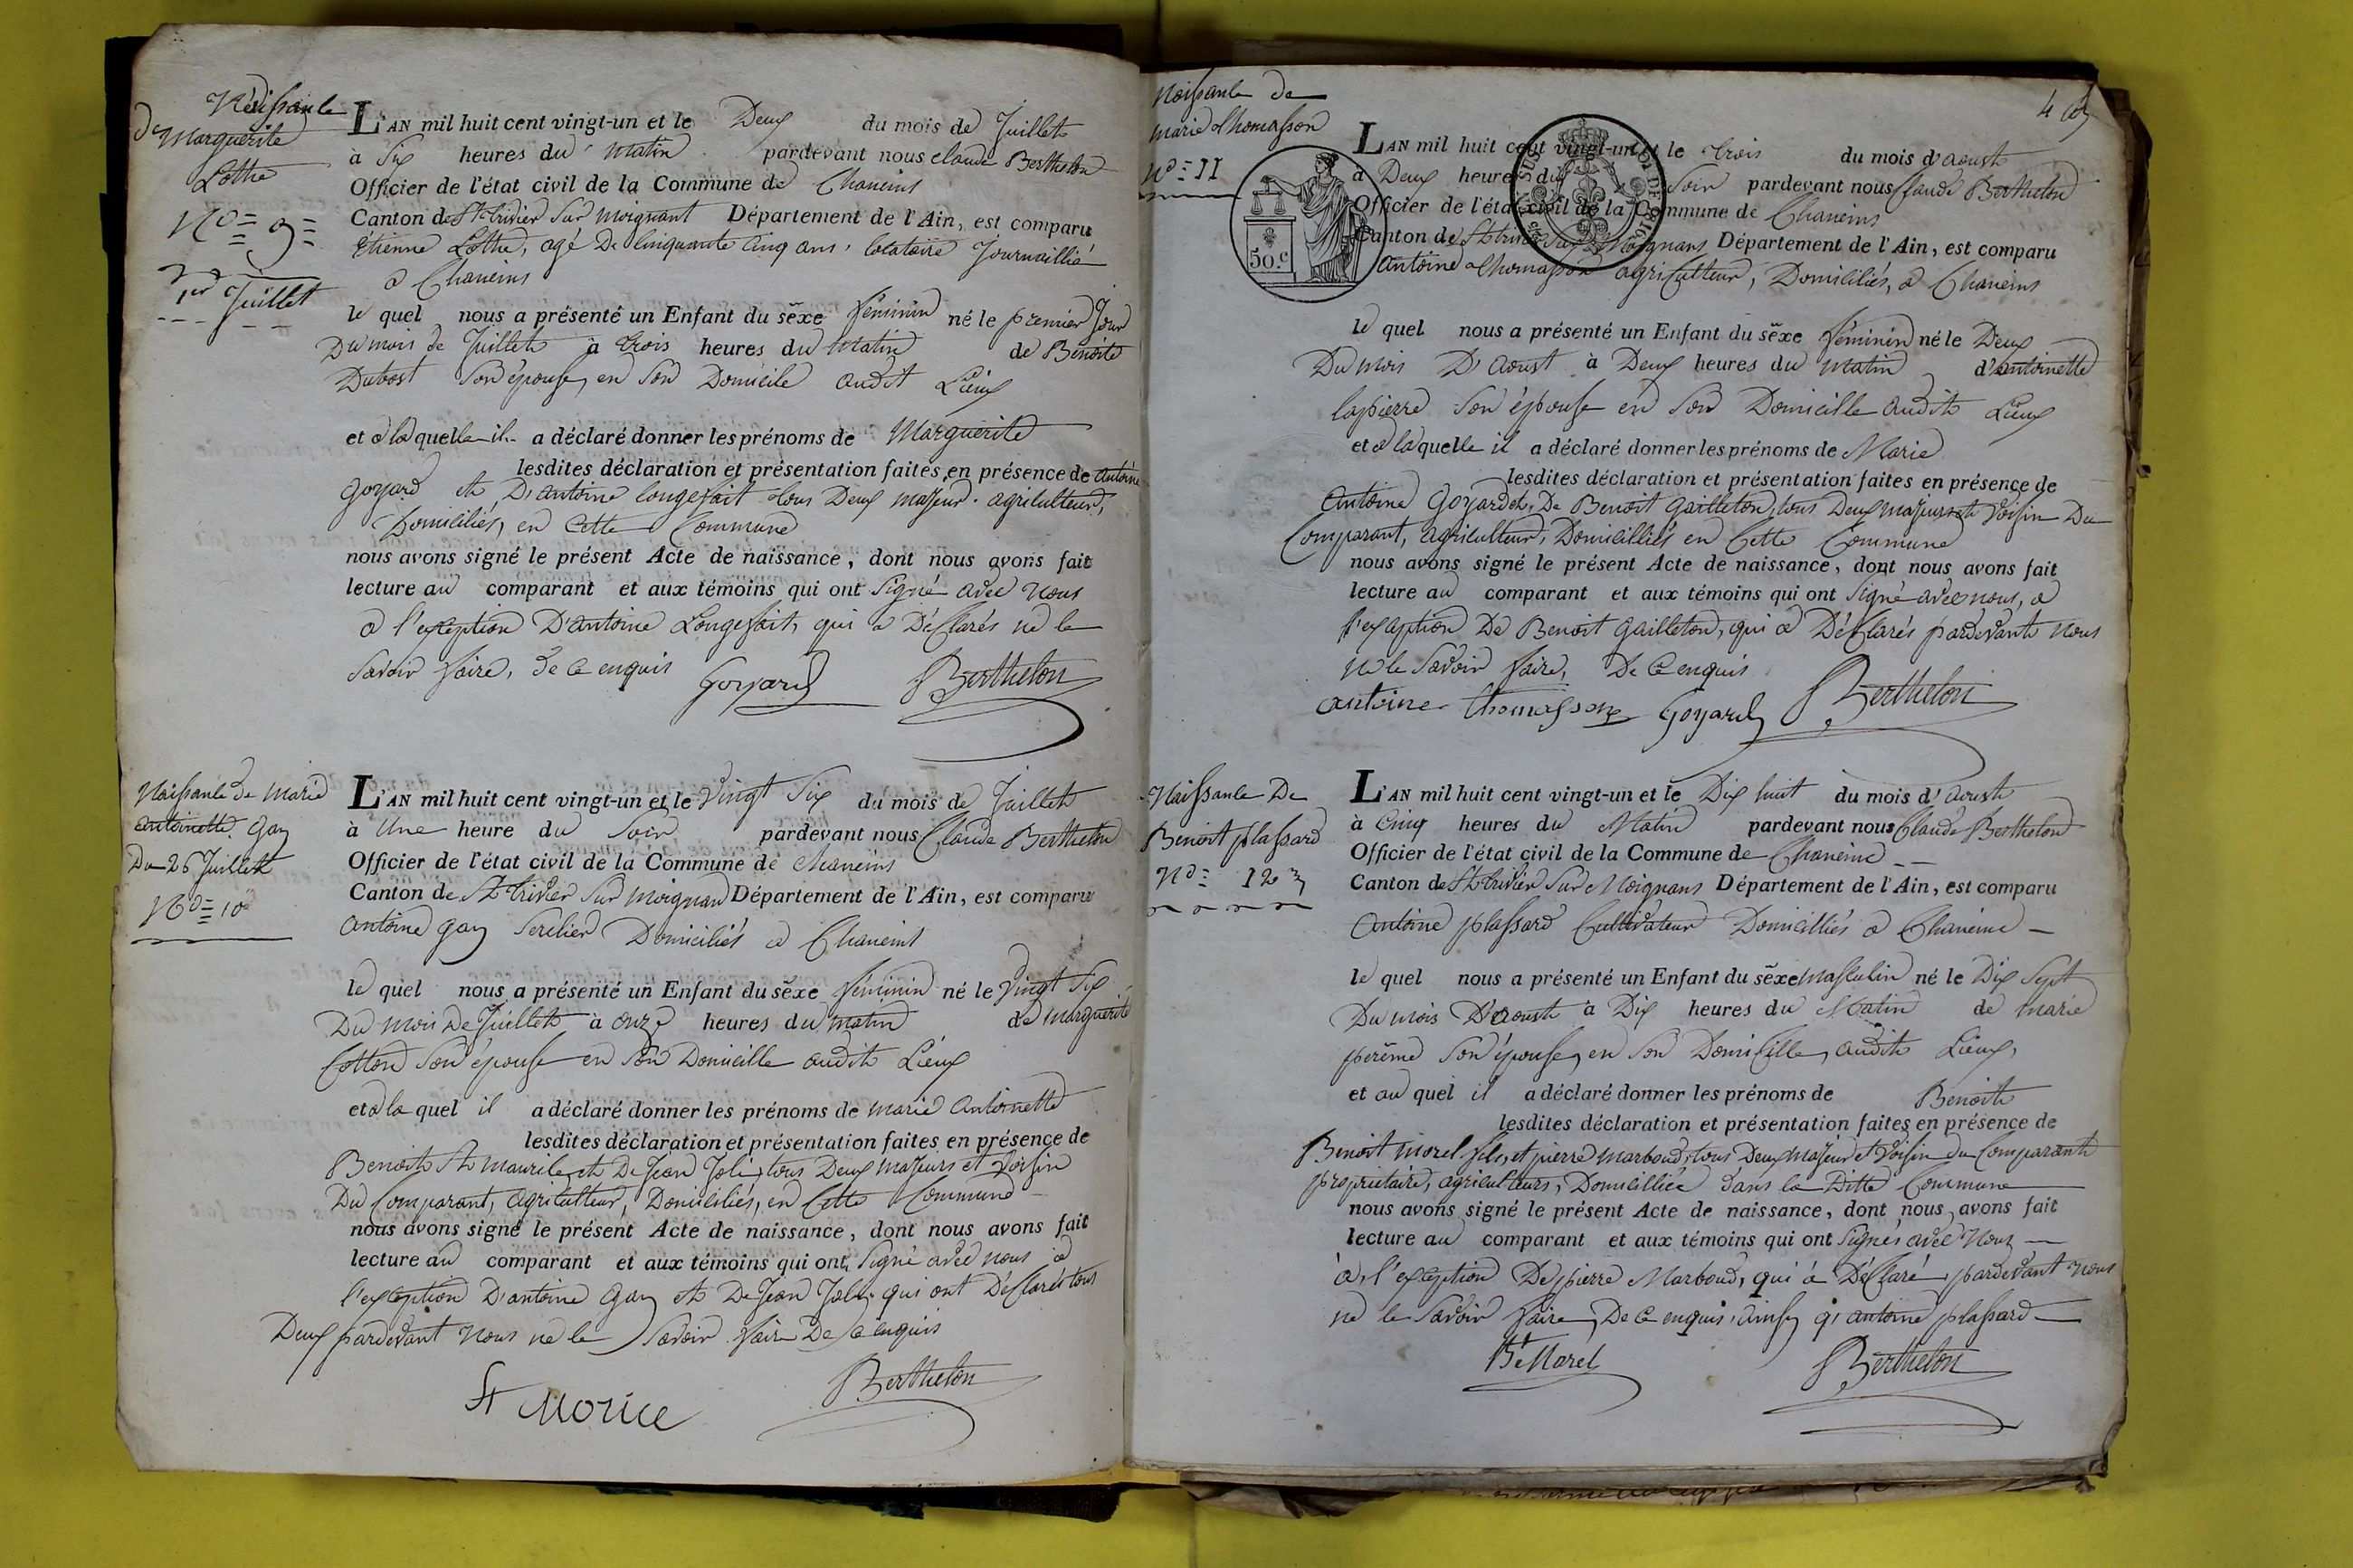 Naissance
de Marguerite
Lothe
No = 9 =
1er Juillet
L'AN mil huit cent vingt-un et le Deux du mois de Juillet
à Six heures du matin pardevant nous claude Berthelon
Officier de l'état civil de la Commune de Chaneins
Canton de St trivier Sur moignant Département de l'Ain, est comparu
Etienne Lothe, agé De Cinquante Cinq ans, locataire Journaillié
a Chaneins
le quel nous a présenté un Enfant du sexe féminin né le premier Jour
Du mois de Juillet à trois heures du matin de Benoite
Dubost Son épouse, en Son Domicile audit Lieux
et a la quelle il a déclaré donner les prénoms de Marguerite
lesdites déclaration et présentation faites en présence de antoine
goyard et D'antoine longefait tous Deux majeur agriculteur,
Domiciliés, en Cette Commune
nous avons signé le présent Acte de naissance, dont nous avons fait
lecture au comparant et aux témoins qui ont Signé avec nous
a l'exception D'antoine Longefait, qui a Déclarés ne le
Savoir faire, de ce enquis
Goyard Berthelon
Naissance de marie
antoinette gay
Du 26 Juillet
No = 10
L'AN mil huit cent vingt-un et le Vingt Six du mois de Juillet
à Une heure du Soir pardevant nous Claude Berthelon
Officier de l'état civil de la Commune de Chaneins
Canton de St trivier Sur moignan Département de l'Ain, est comparu
antoine gay Domiciliés a Chaneins
le quel nous a présenté un Enfant du sexe féminin né le Vingt Six
Du mois De Juillet à onze heures du matin de marguerite
Cotton Son épouse en Son Domicille audit Lieux
et a la quel il a déclaré donner les prénoms de marie antoinette
lesdites déclaration et présentation faites en présence de
Benoit St Maurile et De Jean Joli, tous Deux majeurs et Voisin
Du Comparant, agriculteur, Domiciliés, en Cette Commune
nous avons signé le présent Acte de naissance, dont nous avons fait
lecture au comparant et aux témoins qui ont Signé avec nous a
l'exception D'antoine Gay et De Jean Joly qui ont Déclarés tous
Deux pardevant nous ne le Savoir faire De ce enquis
St Morice Berthelon
Naissance de
marie thomasson
No = 11
4
50.c
L'AN mil huit cent vingt-un et le trois du mois d'aoust
à Deux heures du Soir pardevant nous Claude Berthelon
Officier de l'état civil de la Commune de Chaneins
Canton de St trivier Sur Moignans Département de l'Ain, est comparu
antoine thomasson agriculteur, Domiciliés, a Chaneins
le quel nous a présenté un Enfant du sexe féminin né le Deux
Du mois D'Aoust à Deux heures du matin d'antoinette
lapierre Son épouse en Son Domicille audit Lieux
et a la quelle il a déclaré donner les prénoms de Marie
lesdites déclaration et présentation faites en présence de
antoine Goyard et De Benoit Gailleton, tous Deux majeurs et Voisin Du
Comparant, agriculteur, Domicilliés en Cette Commune
nous avons signé le présent Acte de naissance, dont nous avons fait
lecture au comparant et aux témoins qui ont Signé avec nous, a
l'exception De Benoit gailleton, qui a Déclarés pardevant nous
ne le Savoir faire, De ce enquis
antoine thomasson Goyard Berthelon
Naissance De
Benoit plassard
No = 12
L'AN mil huit cent vingt-un et le Dix huit du mois d'Aoust
à Cinq heures du Matin pardevant nous Claude Berthelon
Officier de l'état civil de la Commune de Chaneins
Canton de St trivier Sur Moignans Département de l'Ain, est comparu
Antoine plassard Cultivateur Domicilliés a Chaneins
le quel nous a présenté un Enfant du sexe masculin né le Dix Sept
Du mois D'aoust à Dix heures du Matin de marie
Son épouse, en Son Domicille, audit Lieux,
et au quel il a déclaré donner les prénoms de Benoit
lesdites déclaration et présentation faites en présence de
Benoit morel fils, et pierre marboud, tous Deux majeur et Voisin du Comparant
propriétaire, agriculteurs, Domicilliés dans la Ditte Commune
nous avons signé le présent Acte de naissance, dont nous avons fait
lecture au comparant et aux témoins qui ont Signés avec Nous
a, l'exception De pierre Marboud, qui à Déclaré pardevant nous
ne le Savoir faire, De ce enquis, ainsy q, antoine plassard
Bt Morel Berthelon